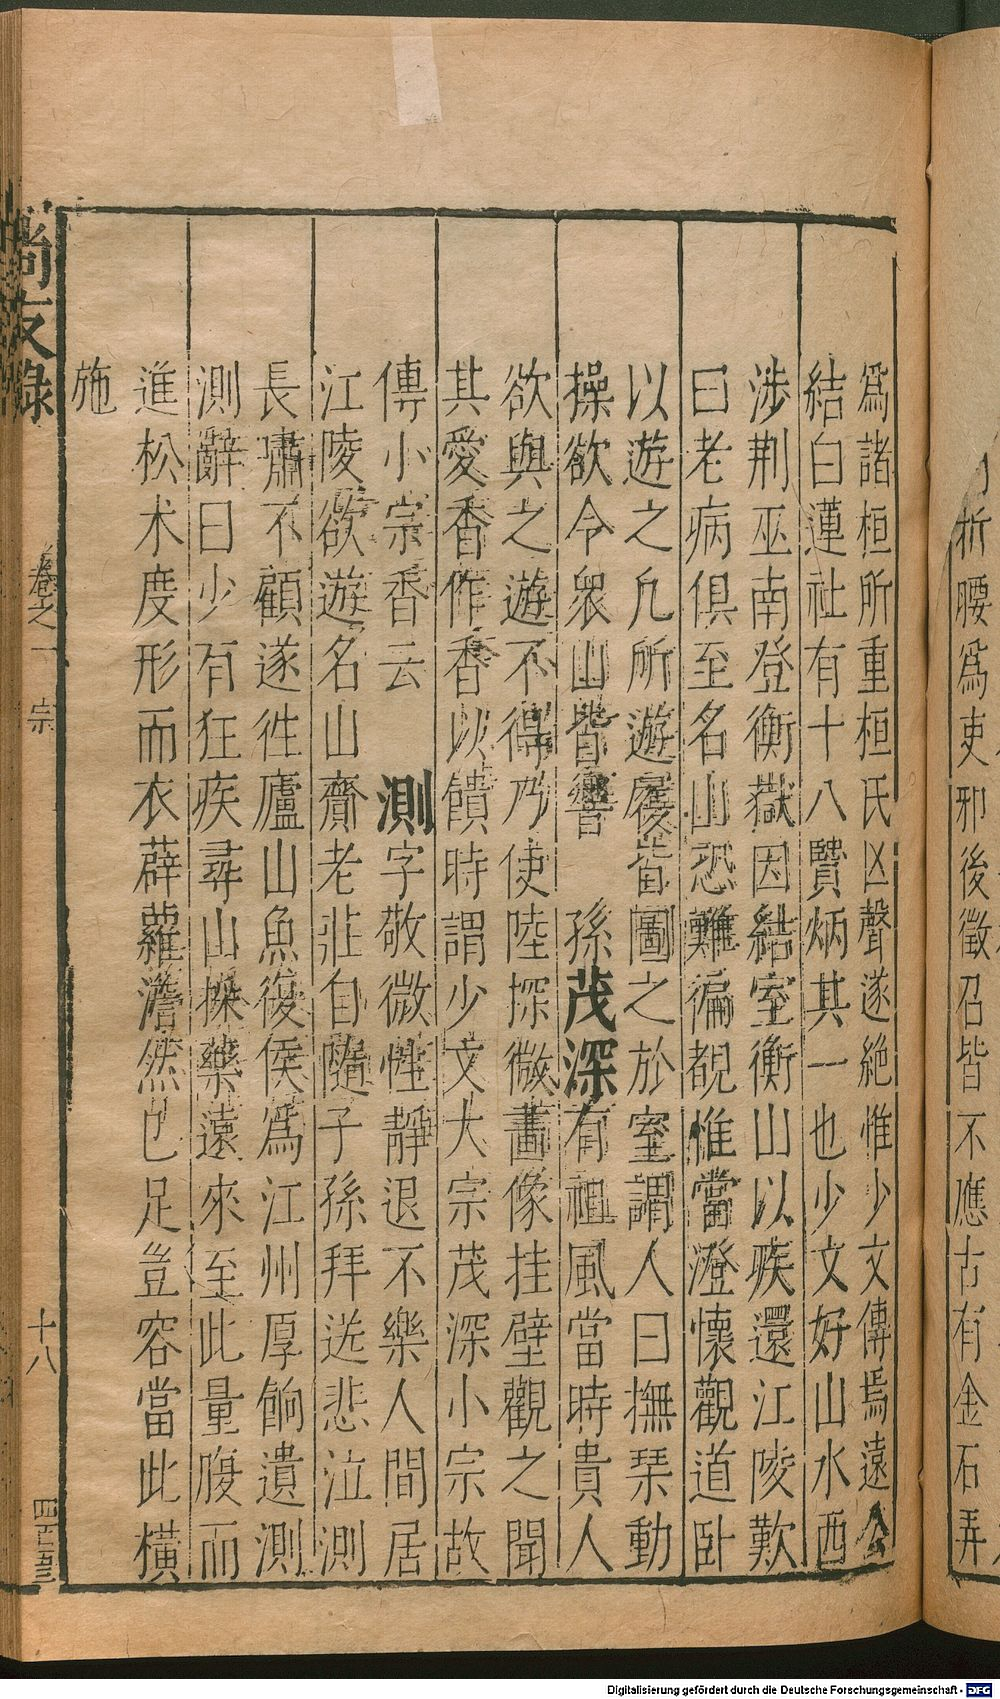 折腰爲吏邪後徵召皆不應古有金石弄
爲諸桓所重桓氏凶聲遂絶惟少文傳焉遠公
結白蓮社有十八賢炳其一也少文好山水西
涉荆巫南登衡嶽因結室衡山以疾還江陵歎
曰老病俱至名山恐難徧覩惟當澄懷觀道卧
以遊之凡所遊履皆圖之於室謂人曰撫琴動
操欲令衆山皆響 孫茂深有祖風當時貴人
欲與之遊不得乃使陸探微畵像挂壁觀之聞
其愛香作香以饋時謂少文大宗茂深小宗故
傳小宗香云 測字敬微性靜退不樂人間居
江陵欲遊名山齎老莊自隨子孫拜送悲泣測
長嘯不顧遂徃廬山魚復侯爲江州厚餉遺測
測辭曰少有狂疾尋山採藥遠來至此量腹而
進松朮度形而衣薜蘿澹然已足豈容當此橫
施
尚友錄
卷之一
宗
十八
四百五三
Digitalisierung gefördert durch die Deutsche Forschungsgemeinschaft - DFG